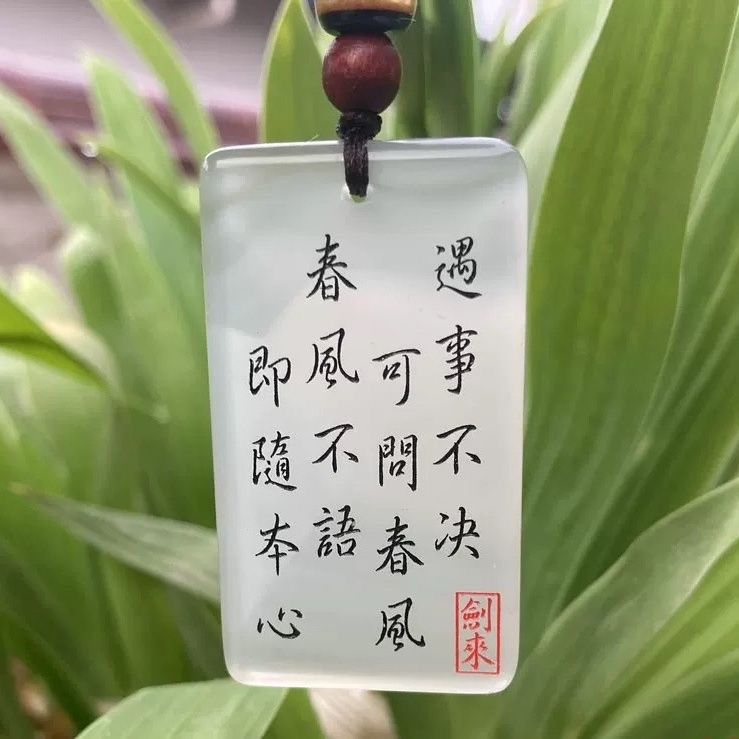 遇事不决
可問春風
春風不語
即隨本心
劍來